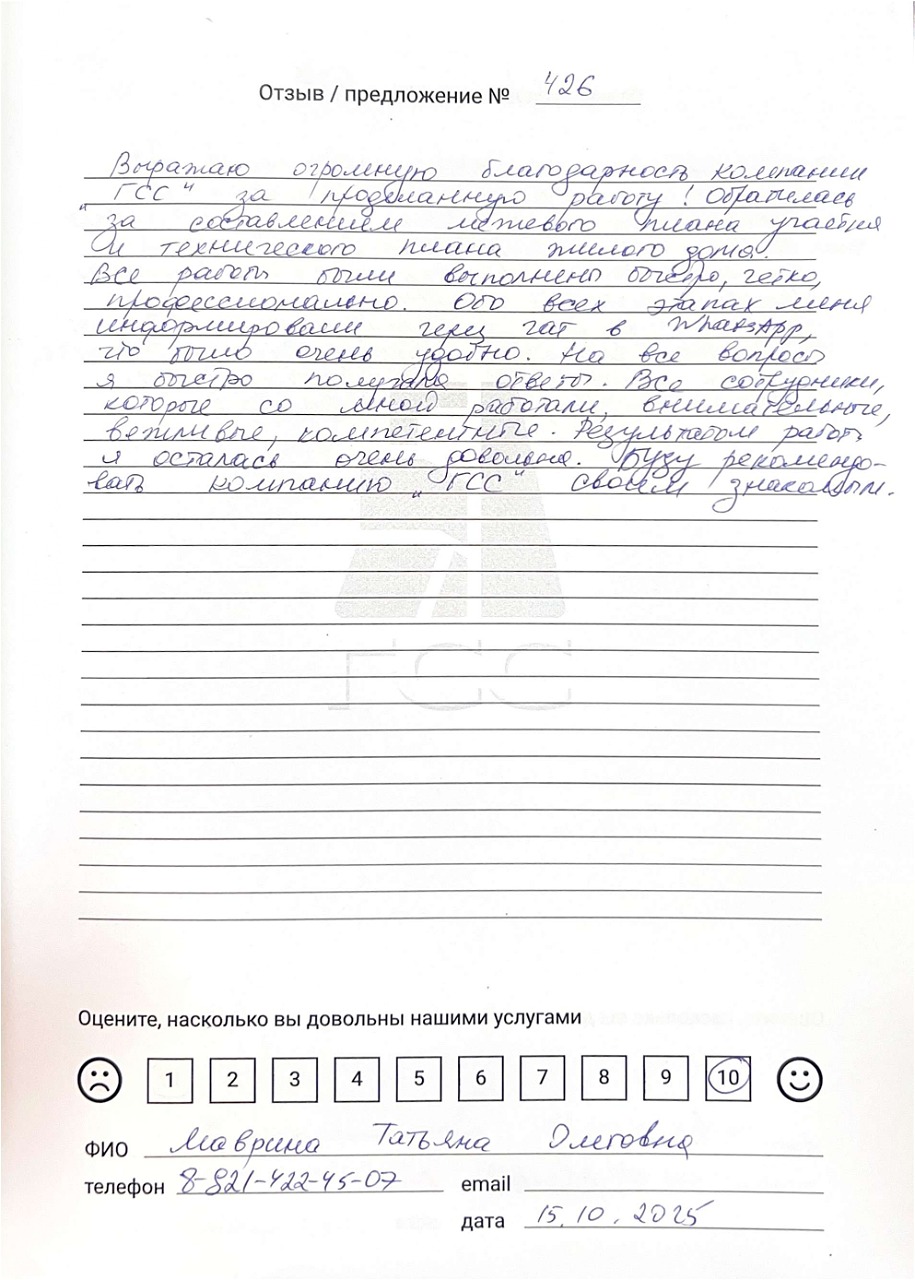 Отзыв / предложение № 426
Выражаю огромную благодарность компании
"ГСС" за проделанную работу! Обратилась
за составлением межевого плана участка
и технического плана жилого дома.
Все работы были выполнены быстро, четко,
профессионально. Обо всех этапах меня
информировали через чат в WhatsApp,
что было очень удобно. На все вопросы
я быстро получала ответы. Все сотрудники,
которые со мной работали, внимательные,
вежливые, компетентные. Результатом работы
я осталась очень довольна. Буду рекомендо-
вать компанию "ГСС" своим знакомым.
ГСС
Оцените, насколько вы довольны нашими услугами
1 2 3 4 5 6 7 8 9 10
ФИО Маврина Татьяна Олеговна
телефон 8-921-422-45-07 email
дата 15.10.2025